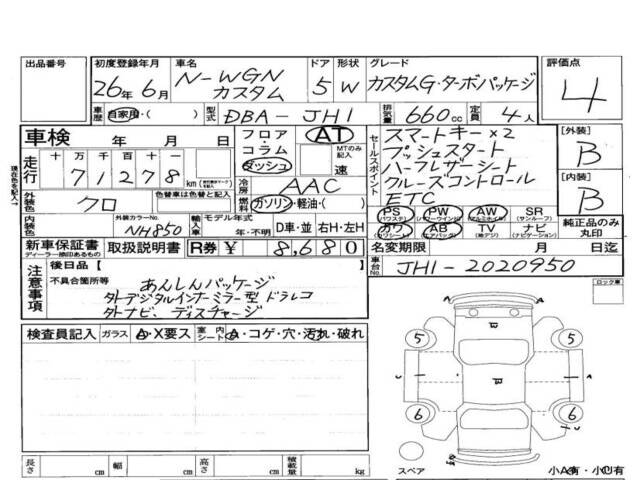 出品番号
初度登録年月
26年 6月
車名
N-WGN
カスタム
ドア
5
形状
W
グレード
カスタムG・ターボパッケージ
評価点
4
車歴 自家用・( )
型式 DBA-JH1
排気量 660cc
定員 4人
車検 年 月 日
フロア・コラム ダッシュ
AT
MTのみ記入
速
セールスポイント
スマートキー×2
プッシュスタート
ハーフレザーシート
クルーズコントロール
ETC
[外装]
B
[内装]
B
現在色を記入→
走行 十 万 千 百 十 一
7 1 2 7 8
km
冷房 AAC
外装色 クロ
色替車は色替と記入
ガソリン・軽油・( )
PS (パワステ)
PW (パワーウィンドウ)
AW (アルミホイル)
SR (サンルーフ)
カワ (カワシート)
AB (エアバッグ)
TV (純テレビ)
ナビ (ナビゲーション)
純正品のみ丸印
内装色
外装カラーNo.
NH850
輸入車
モデル年式
年・不明
D車・並
右H・左H
新車保証書
ディーラー捺印あるもの
取扱説明書
R券 ¥ 8,680
名変期限 月 日迄
注意事項
後日品【 】
不具合箇所等
あんしんパッケージ
外デジタルインナーミラー型ドラレコ
外ナビ、ディスチャージ
車台No. JH1-2020950
ロック車
検査員記入
ガラス A・X要ス
室内シート A・コゲ・穴・汚れ・破れ
B
5
5
A
U
B
A
6
6
C
スペア
B
小A有・小U有
長さ cm
幅 cm
高さ cm
積載量 kg